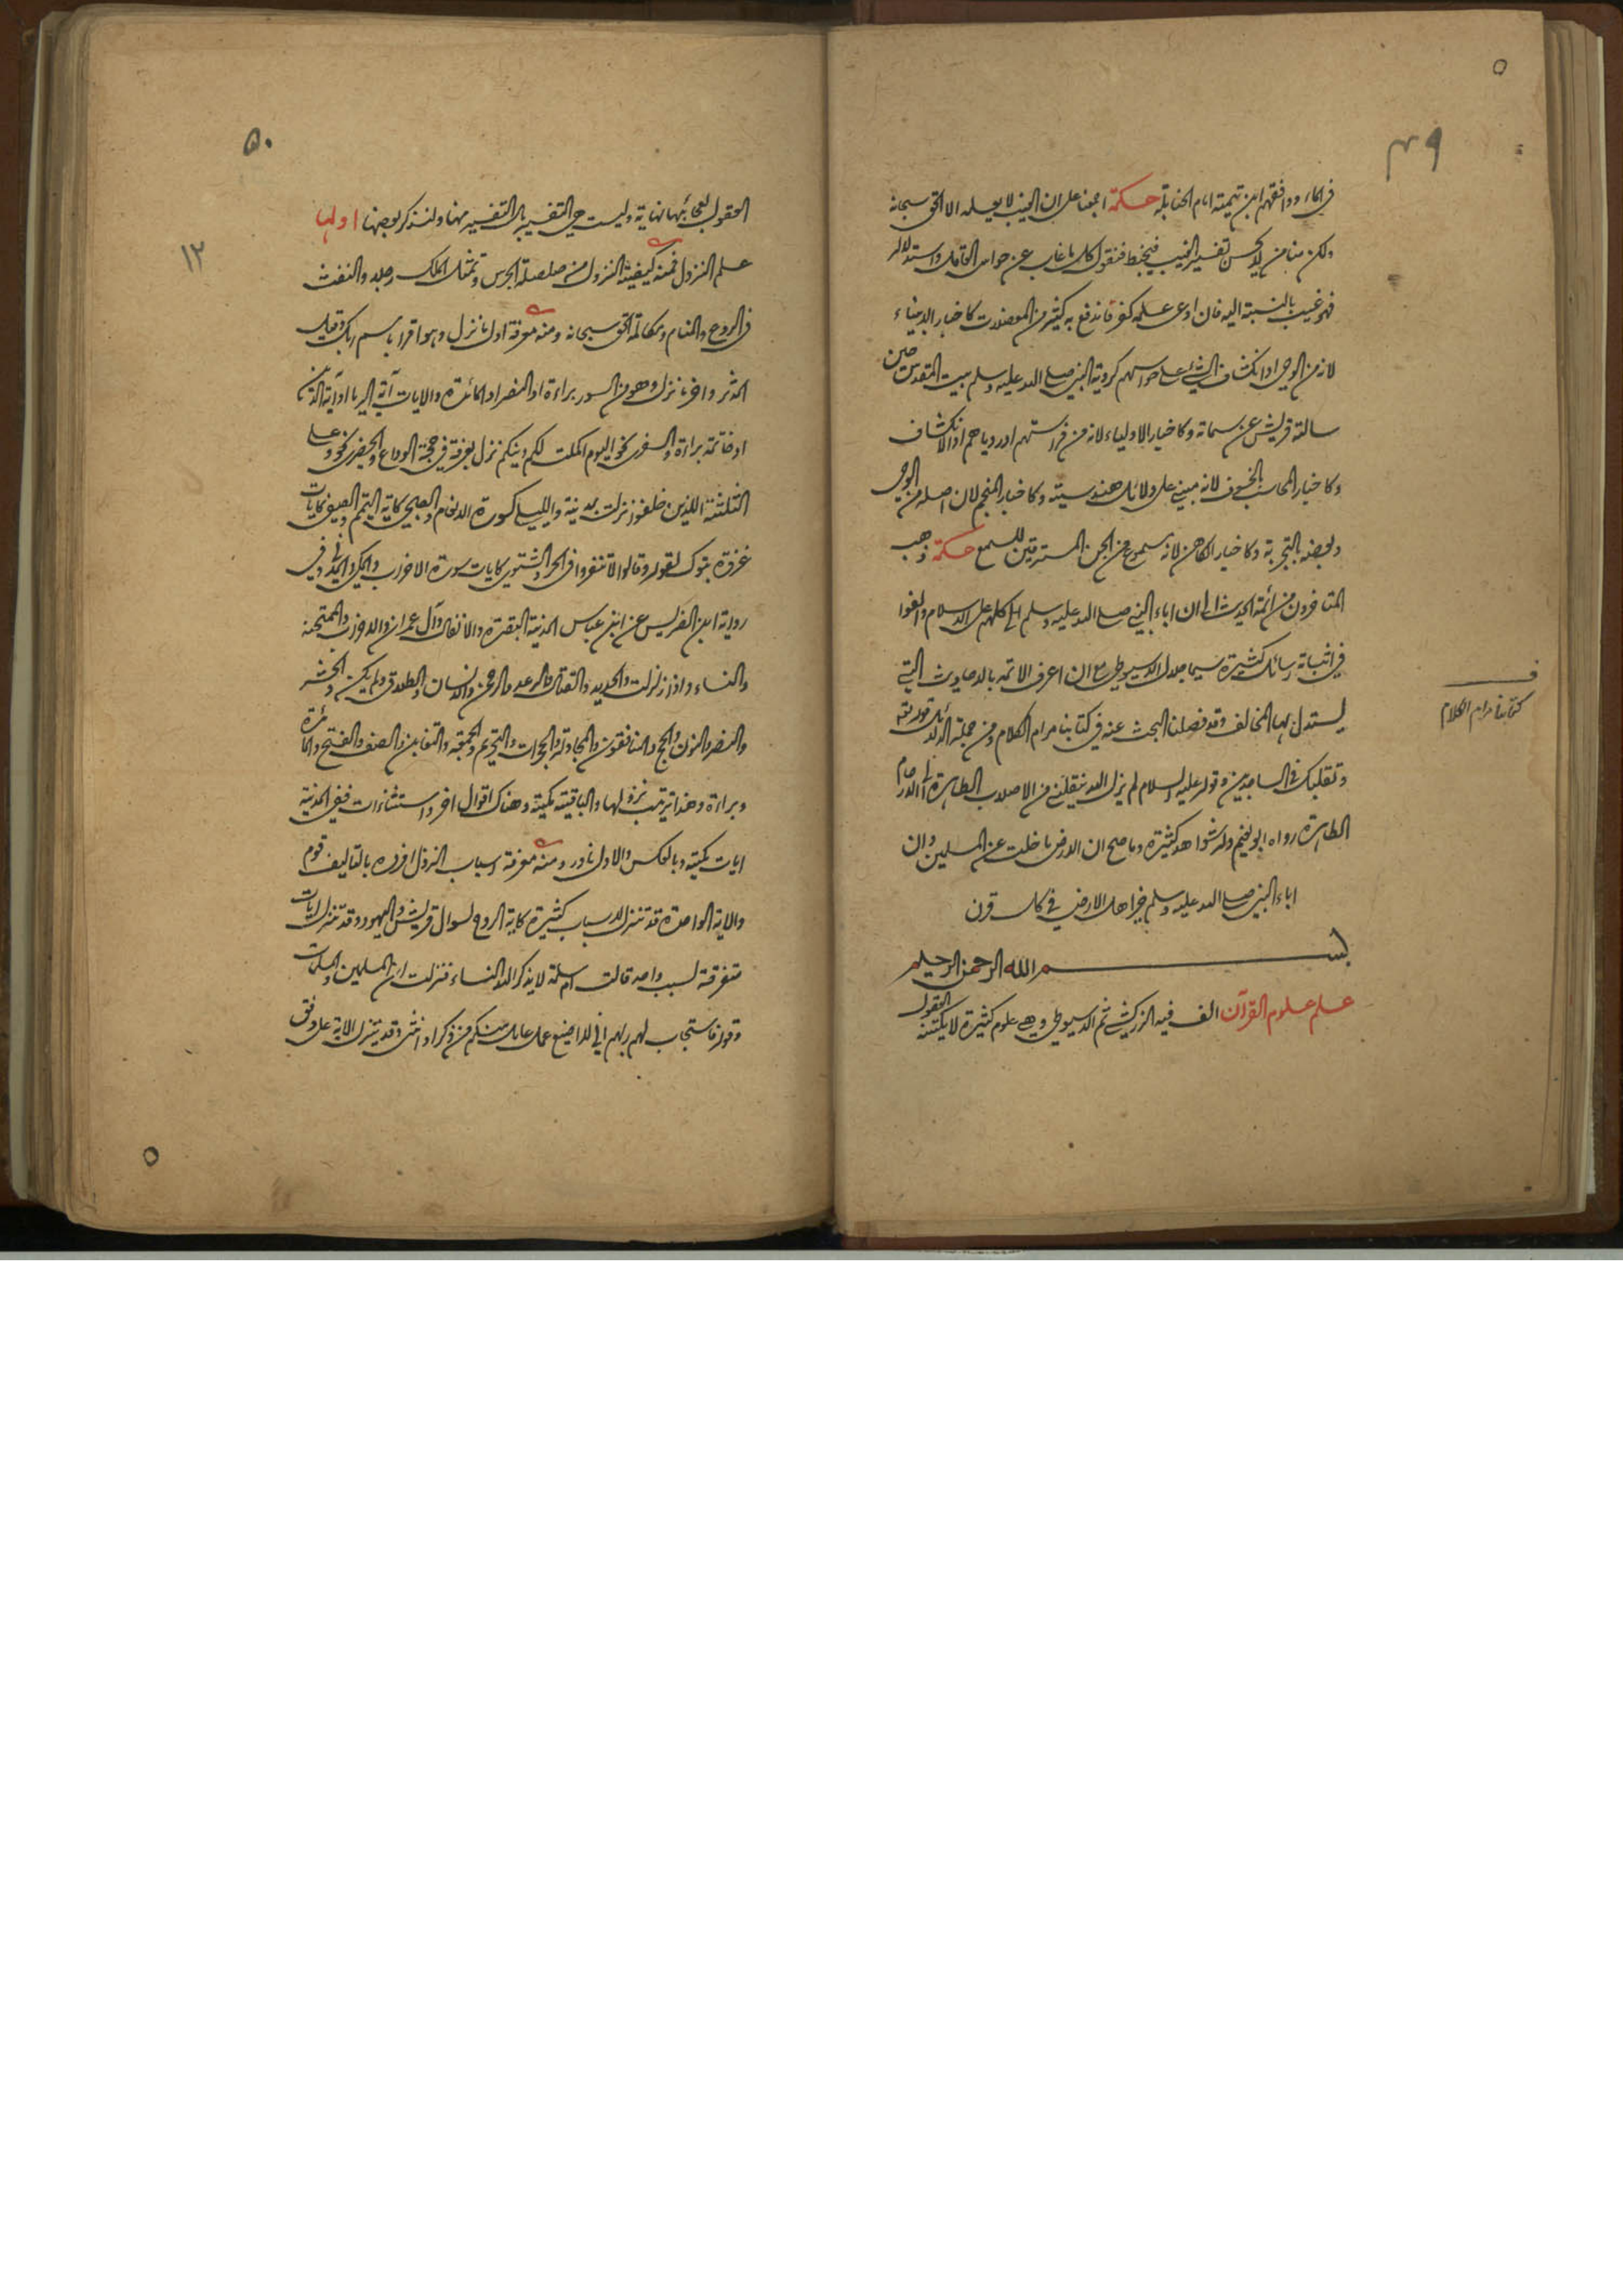 ٤٩
في الماء ووافقهم ابن تيمية امام الحنابلة حكمة اجمعنا على ان الغيب لا يعلمه الا الحق سبحانه
ولكن منا من لا يحسن تفسير الغيب فيخبط فنقول كل ما غاب عن حواس العاقل واستدلاله
فهو غيب بالنسبة اليه فان ادعى علمه كفر فاندفع به كثير من المعضلات كاخبار الانبياء
لانه من الوحي او انكشاف الشئ على حواسهم كرؤية النبي صلى الله عليه وسلم بيت المقدس حين
سالته قريش عن سماته وكاخبار الاولياء لانه من فراستهم او رؤياهم او الانكشاف
وكاخبار المحاسب بالخسوف لانه مبني على دلائل هندسية وكاخبار المنجم لان اصله من الوحي
وبعضه بالتجربة وكاخبار الكاهن لانه مسموع من الجن المسترقين للسمع حكمة ذهب
المتاخرون من ائمة الحديث الى ان اباء النبي صلى الله عليه وسلم كلهم على الاسلام والفوا
في اثباته رسائل كثيرة سيما جلال الدين السيوطي مع ان اعرف الائمة بالاحاديث التي
يستدل بها المخالف وقد فصلنا البحث عنه في كتابنا مرام الكلام ومن جملة الدلائل قوله تعالى
وتقلبك في الساجدين وقوله عليه السلام لم يزل الله ينقلني من الاصلاب الطاهرة الى الارحام
الطاهرة رواه ابو نعيم وله شواهد كثيرة وما صح ان الارض ما خلت عن المسلمين وان
اباء النبي صلى الله عليه وسلم خير اهل الارض في كل قرن
بسم الله الرحمن الرحيم
علم علوم القرآن الف فيه الزركشي ثم السيوطي وهي علوم كثيرة لا يكتنه العقول
ف
كتابنا مرام الكلام
٥٠
١٣
العقول لعجائبها نهاية وليست هي التفسير بل التفسير منها ولنذكر بعضها اولها
علم النزول فمنه كيفية النزول من صلصلة الجرس وتمثل الملك رجلا والنفث
في الروع والمنام ومكالمة الحق سبحانه ومنه معرفة اول ما نزل وهو اقرا باسم ربك وقيل
المدثر واخر ما نزل وهو من السور براءة او النصر او المائدة والايات آية الربا او آية الدين
او خاتمة براءة والسفري نحو اليوم اكملت لكم دينكم نزل بعرفة في حجة الوداع والحضري نحو وعلى
الثلثة الذين خلفوا نزلت بمدينة والليلي كسورة الانعام والصبحي كاية التيمم والصيفي كايات
غزوة تبوك لقوله وقالوا لا تنفروا في الحر والشتوي كايات سورة الاحزاب والمكي والمدني وفي
رواية ابن الضريس عن ابن عباس المدنية البقرة والانفال وآل عمران والاحزاب والممتحنة
والنساء واذا زلزلت والحديد والقتال والرعد والرحمن والانسان والطلاق ولم يكن والحشر
والنصر والنور والحج والمنافقون والمجادلة والحجرات والتحريم والجمعة والتغابن والصف والفتح والمائدة
وبراءة وهذا ترتيب نزولها والباقية مكية وهناك اقوال اخر واستثناءات ففي المدنية
ايات مكية وبالعكس والاول نادر ومنه معرفة اسباب النزول افرده بالتاليف قوم
والاية الواحدة قد تنزل لاسباب كثيرة كاية الروح لسوال قريش واليهود وقد تنزل ايات
متفرقة لسبب واحد قالت ام سلمة لا يذكر الله النساء فنزلت ان المسلمين والمسلمات
وقوله فاستجاب لهم ربهم اني لا اضيع عمل عامل منكم من ذكر او انثى وقد تنزل الاية على وفق